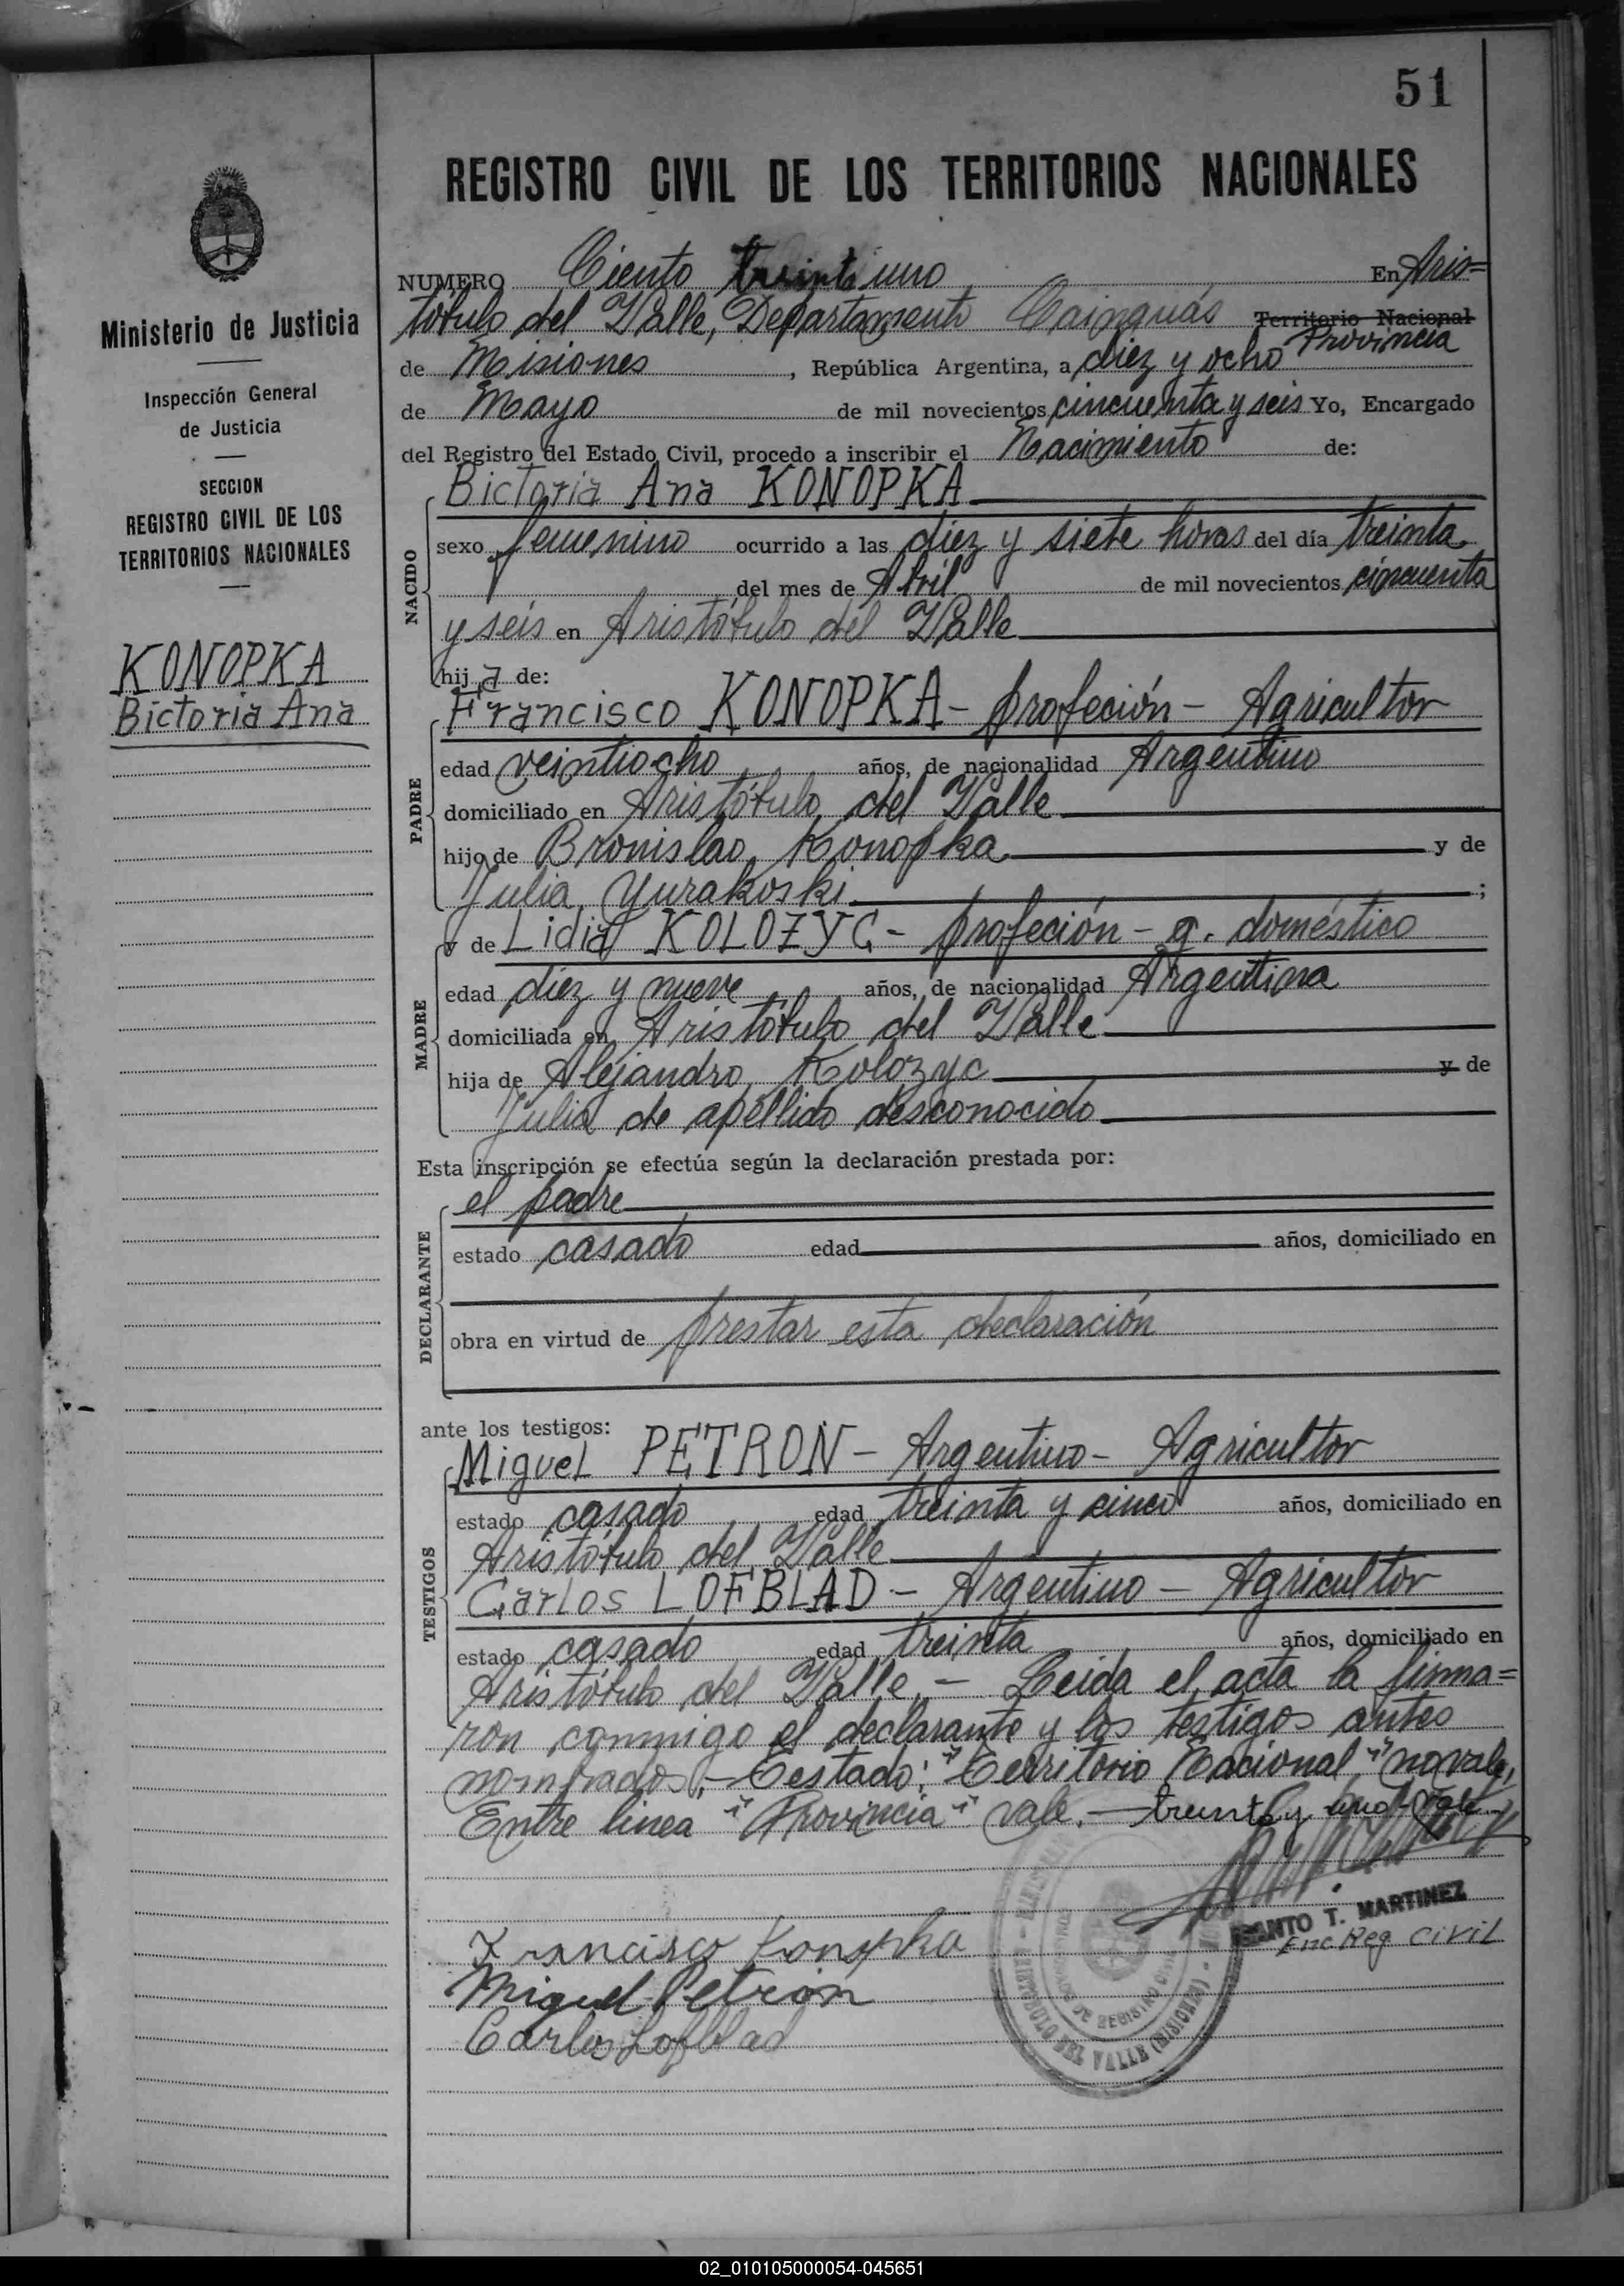 51
REGISTRO CIVIL DE LOS TERRITORIOS NACIONALES
Ministerio de Justicia
Inspección General
de Justicia
SECCION
REGISTRO CIVIL DE LOS
TERRITORIOS NACIONALES
KONOPKA
Bictoria Ana
NUMERO Ciento treinti uno En Aris=
tóbulo del Valle, Departamento Cainguás Territorio Nacional
Provincia
de Misiones , República Argentina, a diez y ocho
de Mayo de mil novecientos cincuenta y seis Yo, Encargado
del Registro del Estado Civil, procedo a inscribir el Nacimiento de:
NACIDO
Bictoria Ana KONOPKA
sexo femenino ocurrido a las diez y siete horas del día treinta
del mes de Abril de mil novecientos cincuenta
y seis en Aristóbulo del Valle
hij a de:
PADRE
Francisco KONOPKA - profeción - Agricultor
edad veintiocho años, de nacionalidad Argentino
domiciliado en Aristóbulo del Valle
hijo de Bronislao Konopka y de
Julia Yurakoski ;
MADRE
y de Lidia KOLOZYC - profeción - q. doméstico
edad diez y nueve años, de nacionalidad Argentina
domiciliada en Aristóbulo del Valle
hija de Alejandro Kolozyc y de
Julia de apellido desconocido
Esta inscripción se efectúa según la declaración prestada por:
DECLARANTE
el padre
estado casado edad años, domiciliado en
obra en virtud de prestar esta declaración
ante los testigos:
TESTIGOS
Miguel PETRON - Argentino - Agricultor
estado casado edad treinta y cinco años, domiciliado en
Aristóbulo del Valle
Carlos LOFBLAD - Argentino - Agricultor
estado casado edad treinta años, domiciliado en
Aristóbulo del Valle - Leida el acta la firma=
ron conmigo el declarante y los testigos antes
nombrados. - Testado: "Territorio Nacional" no vale,
Entre linea "Provincia" vale. - treinta y uno - vale
SANTO T. MARTINEZ
Enc Reg Civil
Francisco Konopka
Miguel Petron
Carlos Lofblad
ARISTOBULO DEL VALLE (MISIONES)
02_010105000054-045651